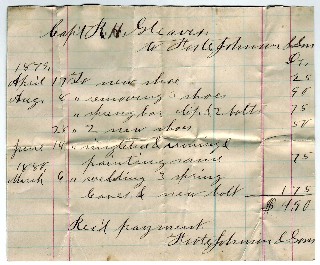 Capt R. H. Gleaves
To Foote Johnson & Sons
Dr,
1879,
April 17 To new shoe 25
Aug 8 " removing 3 shoes 50
" spring bar clip & 2 bolts 75
25 " 2 new shoes 50
June 18 " singletree ironing &
1880, painting same 75
March 6 " welding 3 spring
leaves & new bolt 1 75
$ 4.50
Rec'd payment
Foote Johnson & Sons